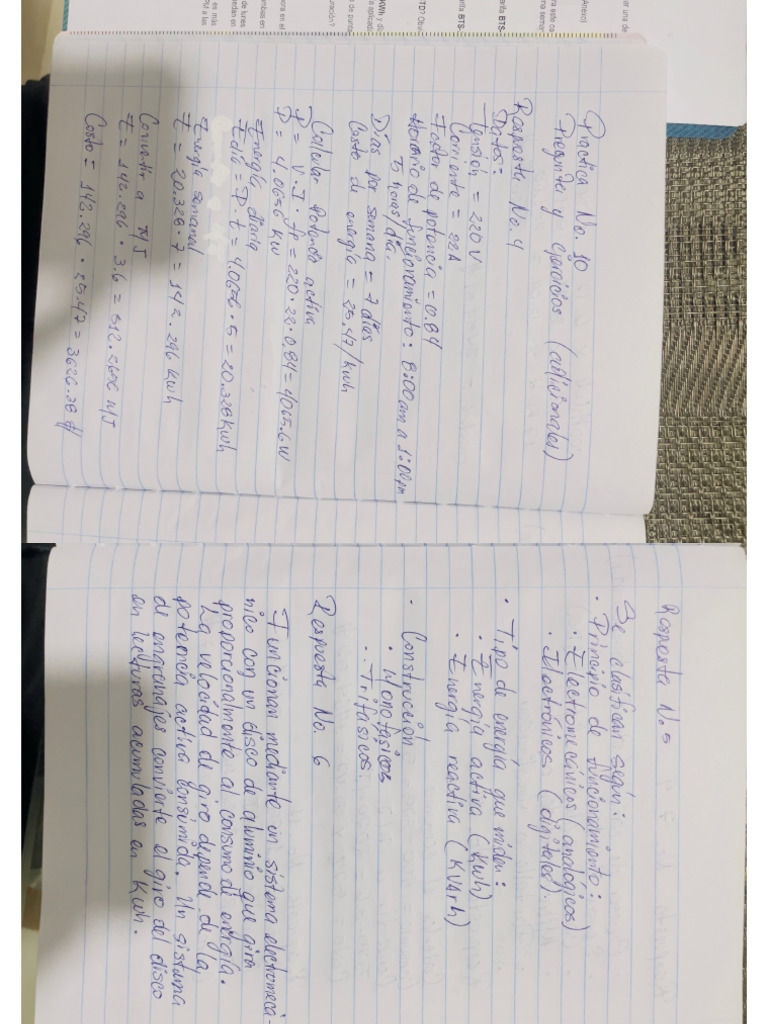 Practica No. 10
Preguntas y ejercicios (adicionales)
Respuesta No. 4
Datos:
Tensión = 220 V
Corriente = 22A
Factor de potencia = 0.84
Horario de funcionamiento: 8:00 am a 1:00 pm
5 horas/día.
Días por semana = 7 días
Costo de energía = 25.47/kwh
Calcular Potencia activa
P = V. I. fp = 220. 22. 0.84 = 4065.6 W
P = 4.0656 Kw
Energía diaria
Edia = P. t = 4.0656 . 5 = 20.328 Kwh
Energía semanal
E = 20.328 . 7 = 142. 296 Kwh
Convertir a MJ
E = 142.296 . 3.6 = 512.2656 MJ
Costo = 142.296 . 25.47 = 3626.28
Respuesta No 5
Se clasifican según:
. Principio de funcionamiento:
. Electromecánicos (analógicos)
. Electrónicos (digitales).
. Tipo de energía que miden:
. Energía activa (Kwh)
. Energía reactiva (KVArh)
. Construcción
. Monofásicos
. Trifásicos.
Respuesta No. 6
Funcionan mediante un sistema electromecá-
nico con un disco de aluminio que gira
proporcionalmente al consumo de energía.
La velocidad de giro depende de la
potencia activa consumida. Un sistema
de engranajes convierte el giro del disco
en lecturas acumuladas en Kwh.